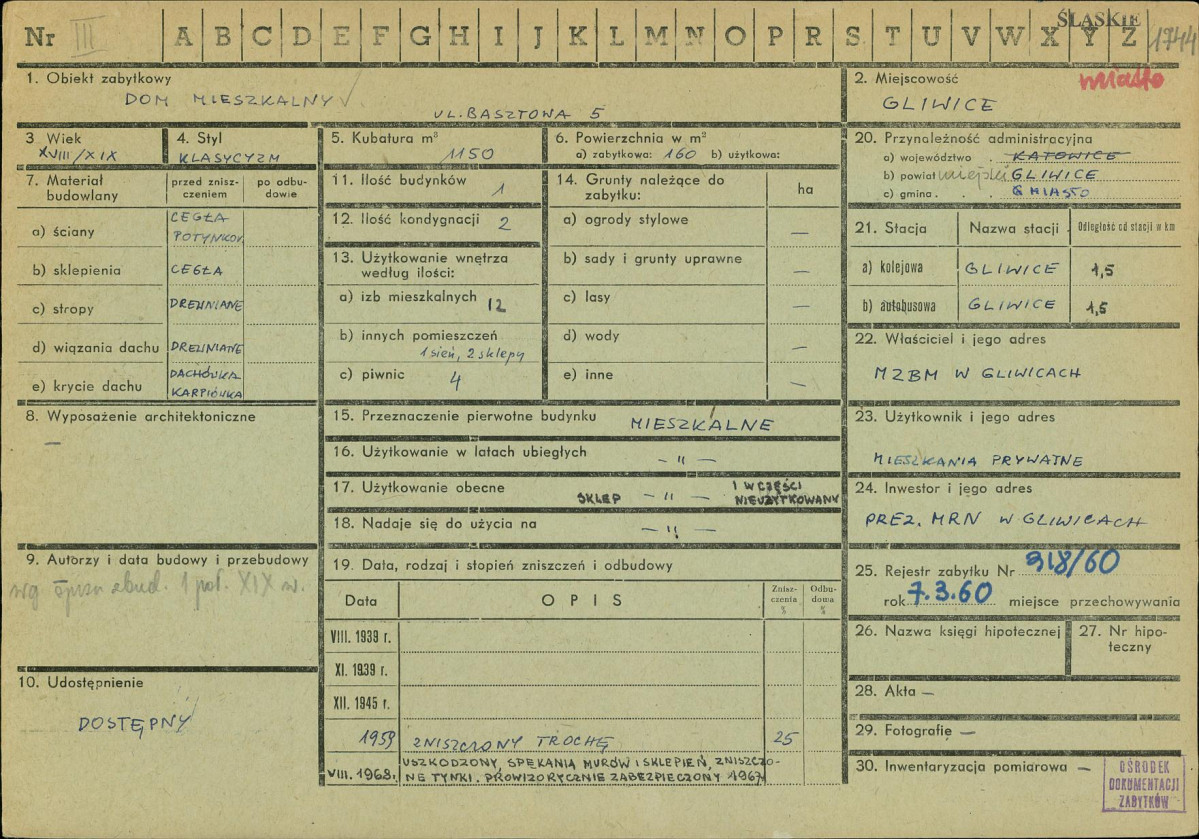 ŚLĄSKIE
Nr III A B C D E F G H I J K L M N O P R S T U V W X Y Z 1744
1. Obiekt zabytkowy
DOM MIESZKALNY
UL. BASZTOWA 5
2. Miejscowość
miasto
GLIWICE
3 Wiek
XVIII/XIX
4. Styl
KLASYCYZM
5. Kubatura m³
1150
6. Powierzchnia w m²
a) zabytkowa: 160 b) użytkowa:
20. Przynależność administracyjna
a) województwo . KATOWICE
b) powiat miejski GLIWICE
c) gmina . . MIASTO
7. Materiał budowlany
przed zniszczeniem
po odbudowie
a) ściany
CEGŁA
POTYNKOW.
b) sklepienia CEGŁA
c) stropy DREWNIANE
d) wiązania dachu DREWNIANE
e) krycie dachu
DACHÓWKA
KARPIÓWKA
11. Ilość budynków 1
12. Ilość kondygnacji 2
13. Użytkowanie wnętrza
według ilości:
a) izb mieszkalnych 12
b) innych pomieszczeń
1 sień, 2 sklepy
c) piwnic 4
14. Grunty należące do
zabytku:
ha
a) ogrody stylowe —
b) sady i grunty uprawne —
c) lasy —
d) wody —
e) inne —
21. Stacja Nazwa stacji Odległość od stacji w km
a) kolejowa GLIWICE 1,5
b) autobusowa GLIWICE 1,5
22. Właściciel i jego adres
MZBM W GLIWICACH
8. Wyposażenie architektoniczne
—
15. Przeznaczenie pierwotne budynku MIESZKALNE
16. Użytkowanie w latach ubiegłych — " —
17. Użytkowanie obecne SKLEP — " — I W CZĘŚCI
NIEUŻYTKOWANY
18. Nadaje się do użycia na — " —
23. Użytkownik i jego adres
MIESZKANIA PRYWATNE
24. Inwestor i jego adres
PREZ. MRN W GLIWICACH
9. Autorzy i data budowy i przebudowy
wg zbud. 1 poł. XIX w.
10. Udostępnienie
DOSTĘPNY
19. Data, rodzaj i stopień zniszczeń i odbudowy
Data OPIS Zniszczenia % Odbudowa %
VIII. 1939 r.
XI. 1939 r.
XII. 1945 r.
1959 ZNISZCZONY TROCHĘ 25
VIII. 1968. USZKODZONY, SPĘKANIA MURÓW I SKLEPIEŃ, ZNISZCZO-
NE TYNKI. PROWIZORYCZNIE ZABEZPIECZONY 1967.
25. Rejestr zabytku Nr 318/60
rok 7.3.60 miejsce przechowywania
26. Nazwa księgi hipotecznej
27. Nr hipo-
teczny
28. Akta —
29. Fotografie —
30. Inwentaryzacja pomiarowa —
OŚRODEK
DOKUMENTACJI
ZABYTKÓW